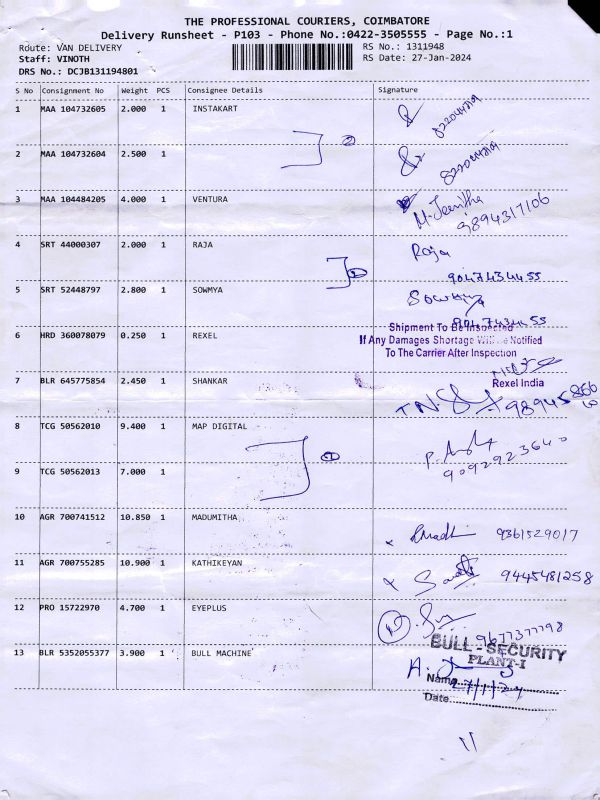 THE PROFESSIONAL COURIERS, COIMBATORE
Delivery Runsheet - P103 - Phone No.:0422-3505555 - Page No.:1
Route: VAN DELIVERY RS No.: 1311948
Staff: VINOTH RS Date: 27-Jan-2024
DRS No.: DCJB131194801
S No Consignment No Weight PCS Consignee Details Signature
1 MAA 104732605 2.000 1 INSTAKART
2 MAA 104732604 2.500 1
3 MAA 104484205 4.000 1 VENTURA
9894317106
4 SRT 44000307 2.000 1 RAJA Raja
9047434455
5 SRT 52448797 2.800 1 SOWMYA Sowmya
9047434455
6 HRD 360078079 0.250 1 REXEL
Shipment To Be Inspected
If Any Damages Shortage Will be Notified
To The Carrier After Inspection
Rexel India
7 BLR 645775854 2.450 1 SHANKAR
8 TCG 50562010 9.400 1 MAP DIGITAL
9092923640
9 TCG 50562013 7.000 1
10 AGR 700741512 10.850 1 MADUMITHA 9361529017
11 AGR 700755285 10.900 1 KATHIKEYAN 9445481258
12 PRO 15722970 4.700 1 EYEPLUS
9677377798
13 BLR 5352055377 3.900 1 BULL MACHINE
BULL - SECURITY
PLANT-I
Name
27/1/24
Date